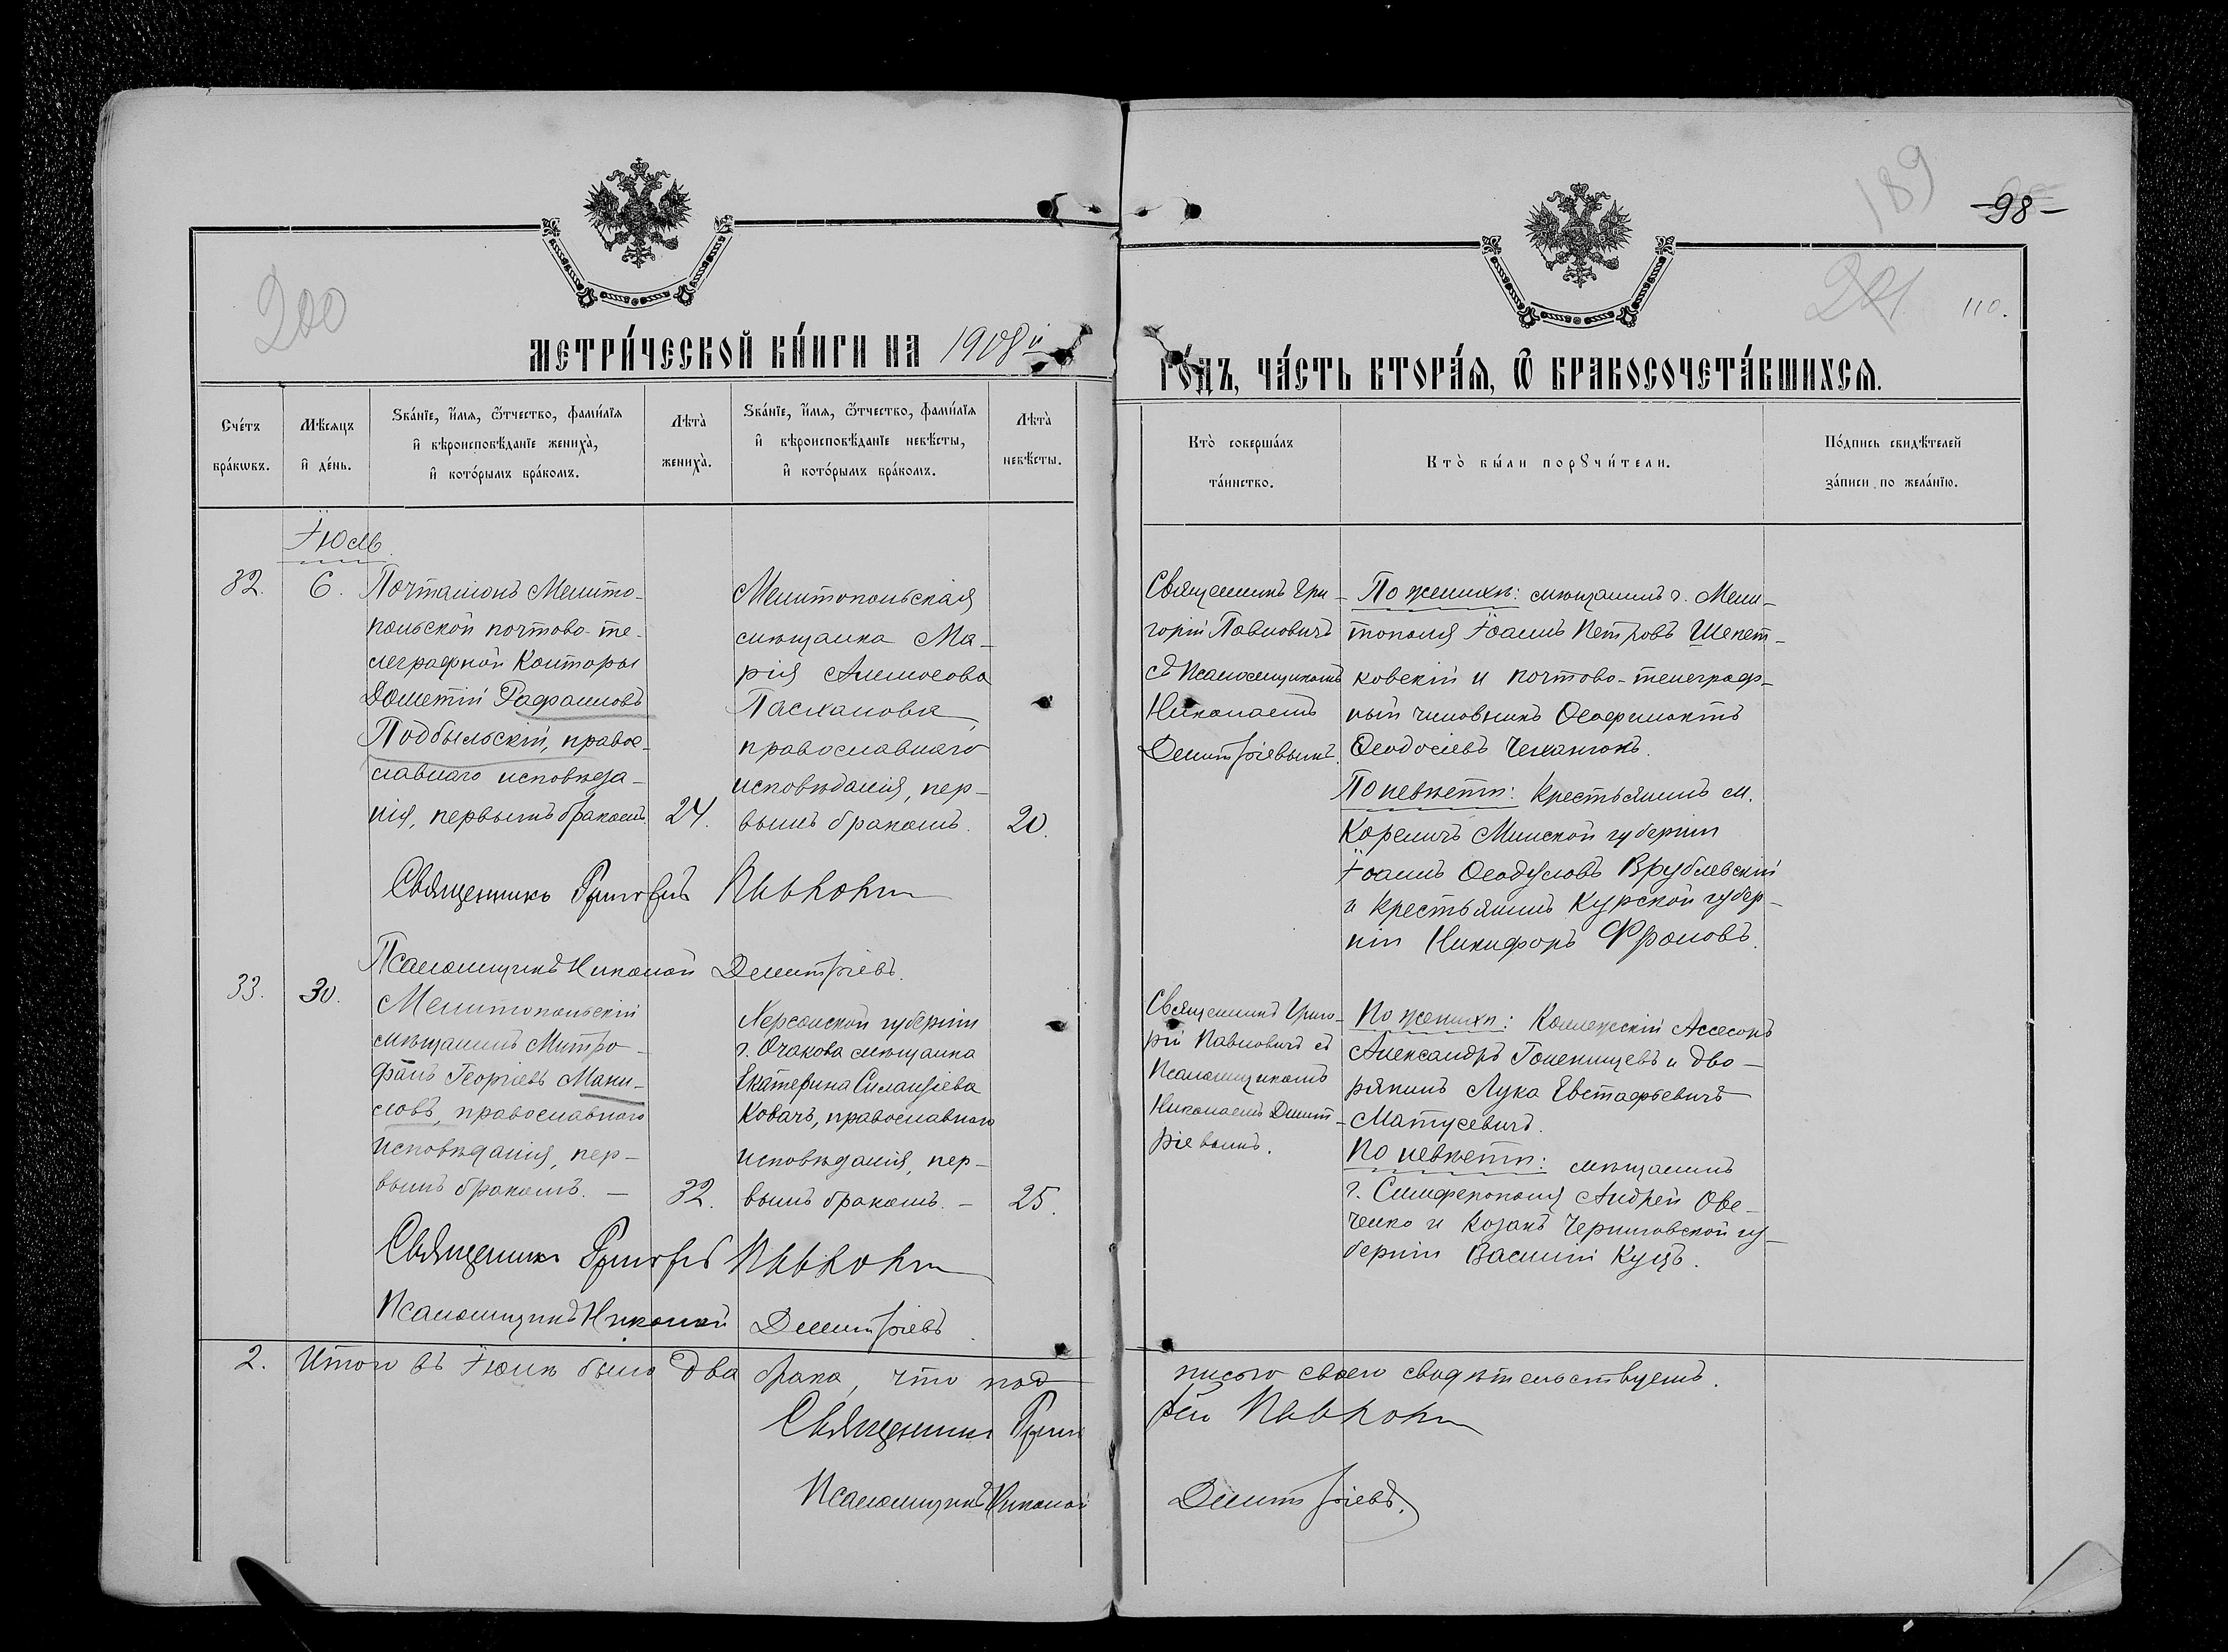 189
-98-
200
201
110.
МЕТРИ́ЧЕСКОЙ КНИ́ГИ НА 1908й
ГО́ДЪ, ЧА́СТЬ ВТОРА́Я, Ѿ БРАКОСОЧЕТА́ВШИХСЯ.
Сче́тъ
бра́ковъ.
Мѣ́сяцъ
и де́нь.
Зва́нїе, и́мя, о́тчество, фами́лїя
и вѣроисповѣ́данїе жениха̀,
и кото́рымъ бра́комъ.
Лѣта̀
жениха̀.
Зва́нїе, и́мя, о́тчество, фами́лїя
и вѣроисповѣ́данїе невѣ́сты,
и кото́рымъ бра́комъ.
Лѣта̀
невѣ́сты.
Кто̀ соверша́лъ
та́инство.
Кто̀ бы́ли поручи́тели.
По́дпись свидѣ́телей
за́писи по жела́нїю.
Іюль
32.
6.
Почталіонъ Мелито-
польской почтово-те-
леграфной Конторы
Дометій Рафаиловъ
Подбѣльскій, право-
славнаго исповѣда-
нія, первымъ бракомъ.
24.
Мелитопольская
мѣщанка Ма-
рія Алексѣева
православнаго
исповѣданія, пер-
вымъ бракомъ.
20.
Священникъ Гри-
горій Павловичъ
съ Псаломщикомъ
Николаемъ
Димитріевымъ.
По женихѣ: мѣщанинъ г. Мели-
тополя Іоаннъ Петровъ Шепет-
ковскій и почтово-телеграф-
ный чиновникъ Ѳеофилактъ
Ѳеодосіевъ
По невѣстѣ: крестьянинъ м.
Кореличъ Минской губерніи
Іоаннъ Ѳеодуловъ Врублевскій
и крестьянинъ Курской губер-
ніи Никифоръ Фроловъ.
Священникъ Григорій
Псаломщикъ Николай Димитріевъ.
33.
30.
Мелитопольскій
мѣщанинъ Митро-
фанъ Георгіевъ Мани-
ловъ, православнаго
исповѣданія, пер-
вымъ бракомъ. —
32.
Херсонской губерніи
г. Очакова мѣщанка
Екатерина
Ковачъ, православнаго
исповѣданія, пер-
вымъ бракомъ. —
25.
Священникъ Григо-
рій Павловичъ съ
Псаломщикомъ
Николаемъ Димит-
ріевымъ.
По женихѣ: Коллежскій Ассесоръ
Александръ Голенищевъ и дво-
рянинъ Лука Евстафьевичъ
Матусевичъ.
По невѣстѣ: мѣщанинъ
г. Симферополя Андрей Ове-
ченко и козакъ Черниговской гу-
берніи Василій Куцъ.
Священникъ Григорій
Псаломщикъ Николай Димитріевъ
2. Итого въ Іюлѣ было два брака, что под
писью своею свидѣтельствуемъ.
Священникъ Григорій
Псаломщикъ Николай Димитріевъ.